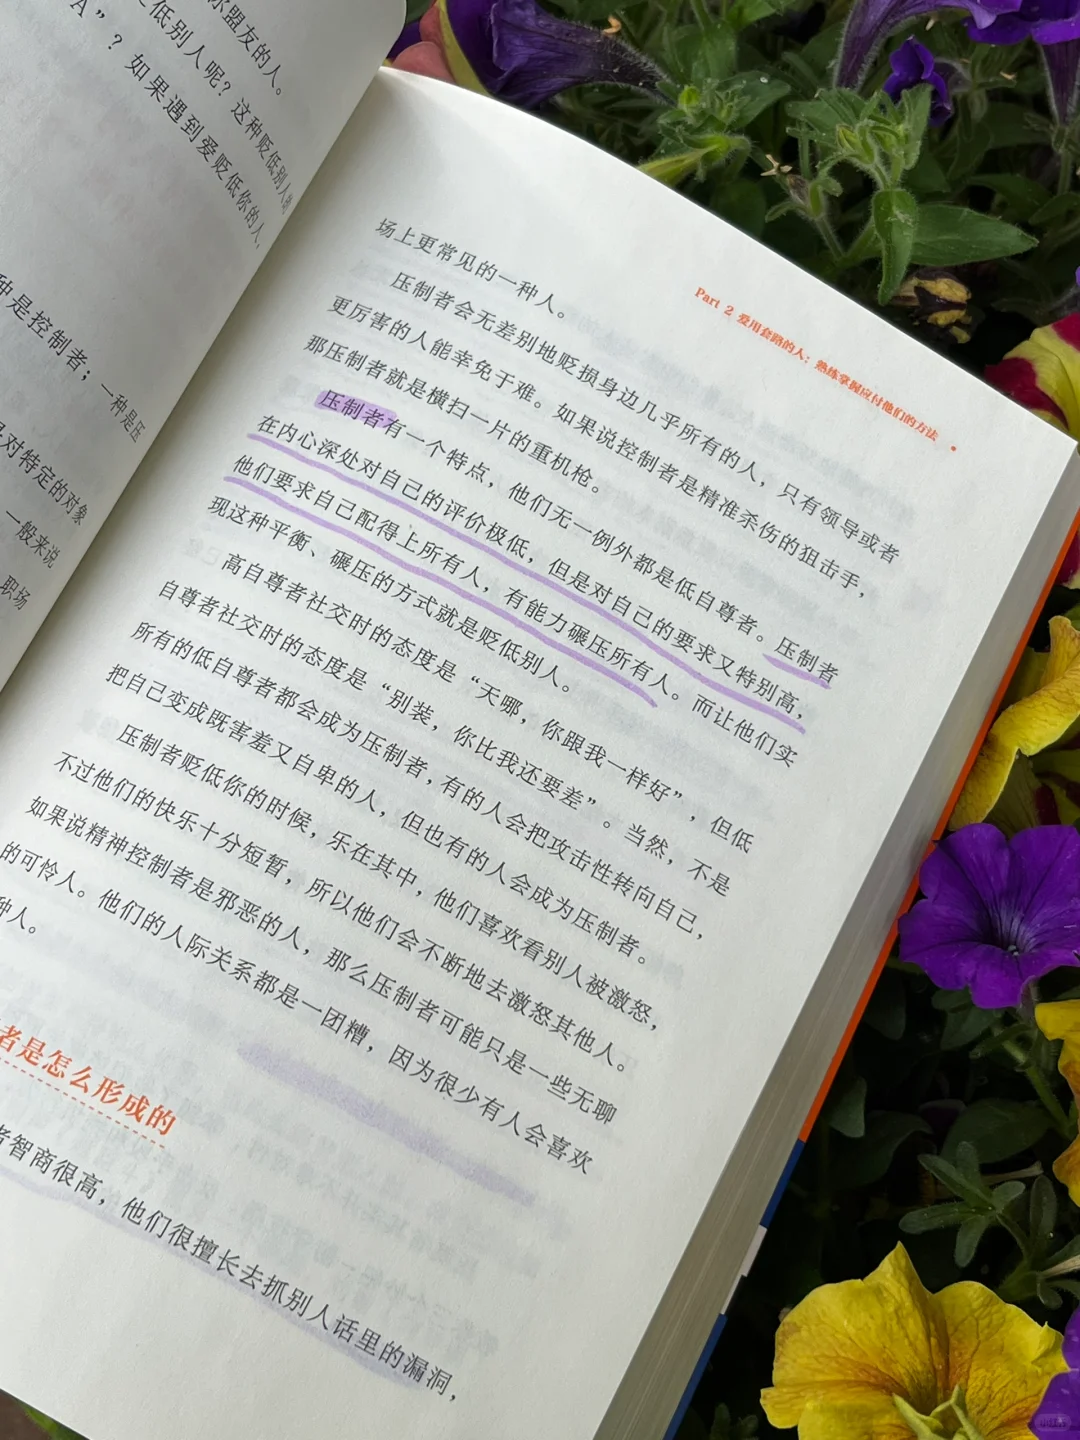 你盟友的人。
低别人呢？这种贬低别人
A”？如果遇到爱贬低你的人，
种是控制者；一种是压
对特定的对象
一般来说
职场
Part 2 爱用套路的人：熟练掌握应付他们的方法
场上更常见的一种人。
压制者会无差别地贬损身边几乎所有的人，只有领导或者
更厉害的人能幸免于难。如果说控制者是精准杀伤的狙击手，
那压制者就是横扫一片的重机枪。
压制者有一个特点，他们无一例外都是低自尊者。压制者
在内心深处对自己的评价极低，但是对自己的要求又特别高，
他们要求自己配得上所有人，有能力碾压所有人。而让他们实
现这种平衡、碾压的方式就是贬低别人。
高自尊者社交时的态度是“天哪，你跟我一样好”，但低
自尊者社交时的态度是“别装，你比我还要差”。当然，不是
所有的低自尊者都会成为压制者，有的人会把攻击性转向自己，
把自己变成既害羞又自卑的人，但也有的人会成为压制者。
压制者贬低你的时候，乐在其中，他们喜欢看别人被激怒，
不过他们的快乐十分短暂，所以他们会不断地去激怒其他人。
如果说精神控制者是邪恶的人，那么压制者可能只是一些无聊
的可怜人。他们的人际关系都是一团糟，因为很少有人会喜欢
种人。
者是怎么形成的
者智商很高，他们很擅长去抓别人话里的漏洞，